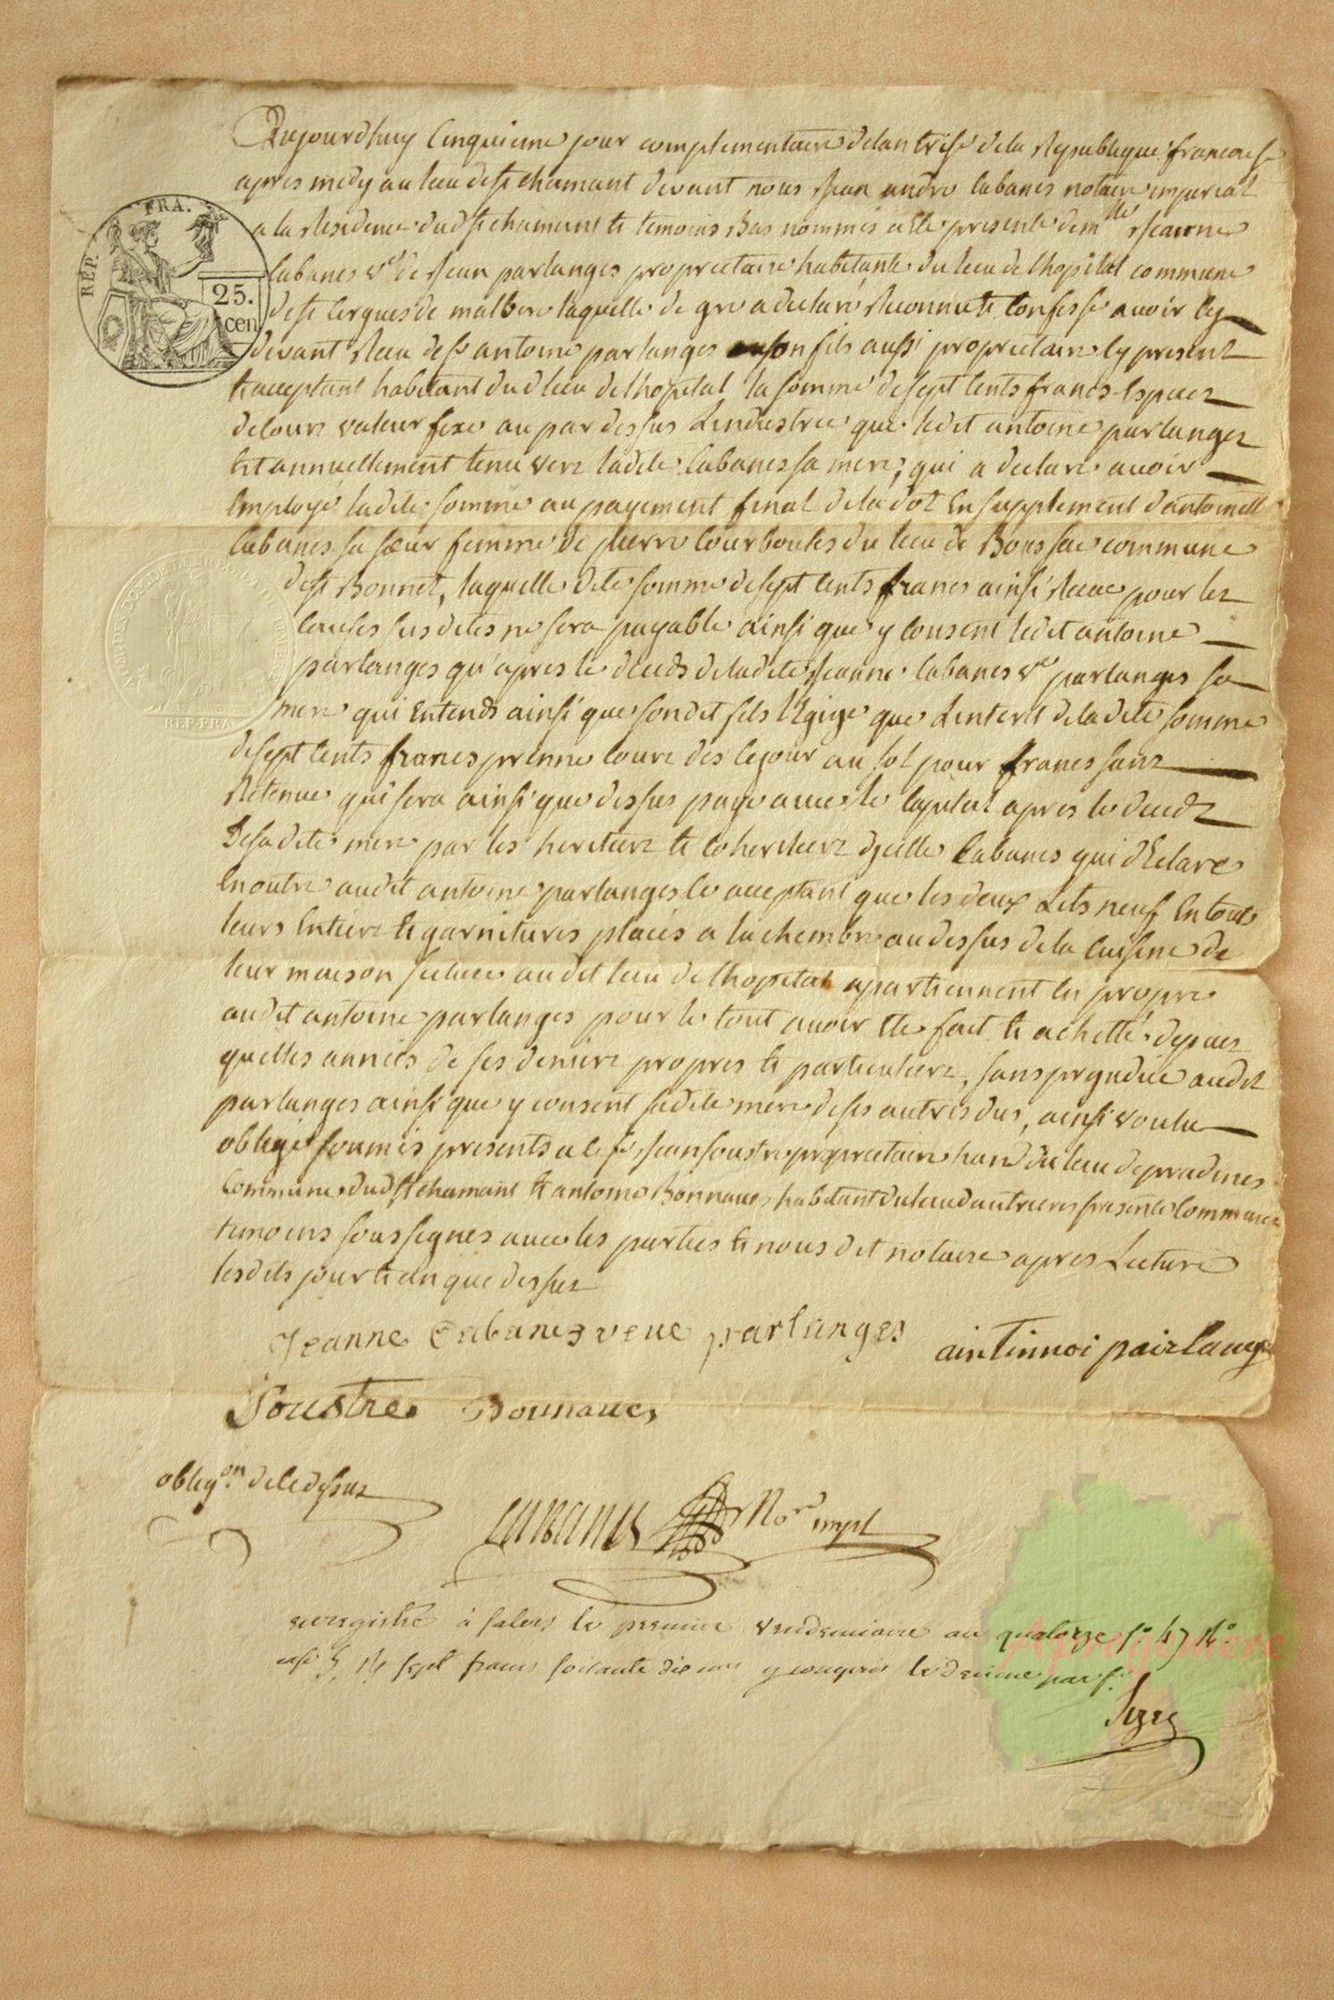 Aujourdhuy Cinquieme jour complementaire delan treise de la Republique francoise
apres midy au lieu de st chamant devant nous Jean andre Cabanes notaire imperial
a la Residence dud st chamant et temoins Bas nommés a été presente demlle Jeanne
Cabanes ve de Jean parlanges proprietaire habitante du lieu de lhopital commune
de st Cergues de malbere laquelle de gre a declaré Reconnu et Confessé avoir cy
devant Recu de sr antoine parlanges son fils aussi proprietaire cy present
et acceptant habitant dud lieu de lhopital la somme de sept cents francs Especes
de cour valeur fixe au par dessus Lindustrie que ledit antoine parlanges
Est annuellement tenu vers ladite Cabanes sa mere, qui a declaré avoir
Employé ladite somme au payement final de la dot En supplement dantoinett
Cabanes sa sœur femme de pierre Courboules du lieu de Boussac commune
de st Bonnet, laquelle dite somme de sept cents francs ainsi Recue pour les
Causes susdites ne sera payable ainsi que y consent ledit antoine
parlanges qu'apres le deceds de ladite Jeanne Cabanes ve parlanges sa
mere qui Entends ainsi que sondit fils l'Egige que Linteret de ladite somme
de sept cents francs prenne cours des ce jour au sol pour francs sans
Retenue qui sera ainsi que dessus payé avec le capital apres le deceds
De sadite mere par les heritiers et coheritiers dycelle Cabanes qui dEclare
En outre audit antoine parlanges ce acceptant que les deux Lits neuf En touts
leurs Entiers et garnitures placés a la chembre au dessus de la cuisine de
leur maison scituée audit lieu de lhopital apartiennent En propre
audit antoine parlanges pour le tout avoir été fait et achetté depuis
quelles années de ses deniers propres et particuliers, sans prejudice audit
parlanges ainsi que y consent sadite mere de ses autres dus, ainsi voulu
obligé soumis presents a ce sr Jean soustre proprietaire hant du lieu de pradines
Commune dud st chamant et antoine Bonnaves habitant du lieu dautrieres presente Commune
temoins soussignes avec les parties et nous dit notaire apres Lecture
lesdits jour et an que dessus
Jeanne Cabanes veue parlanges
aintinnoi pairlange
Soustre Bonnaves
obligon de ce dessus
CABANES Nore impl
enregistré à salers le premier vendemiaire an quatorze fo 47 Ro
sept francs soixante dix y compris le decime par fr